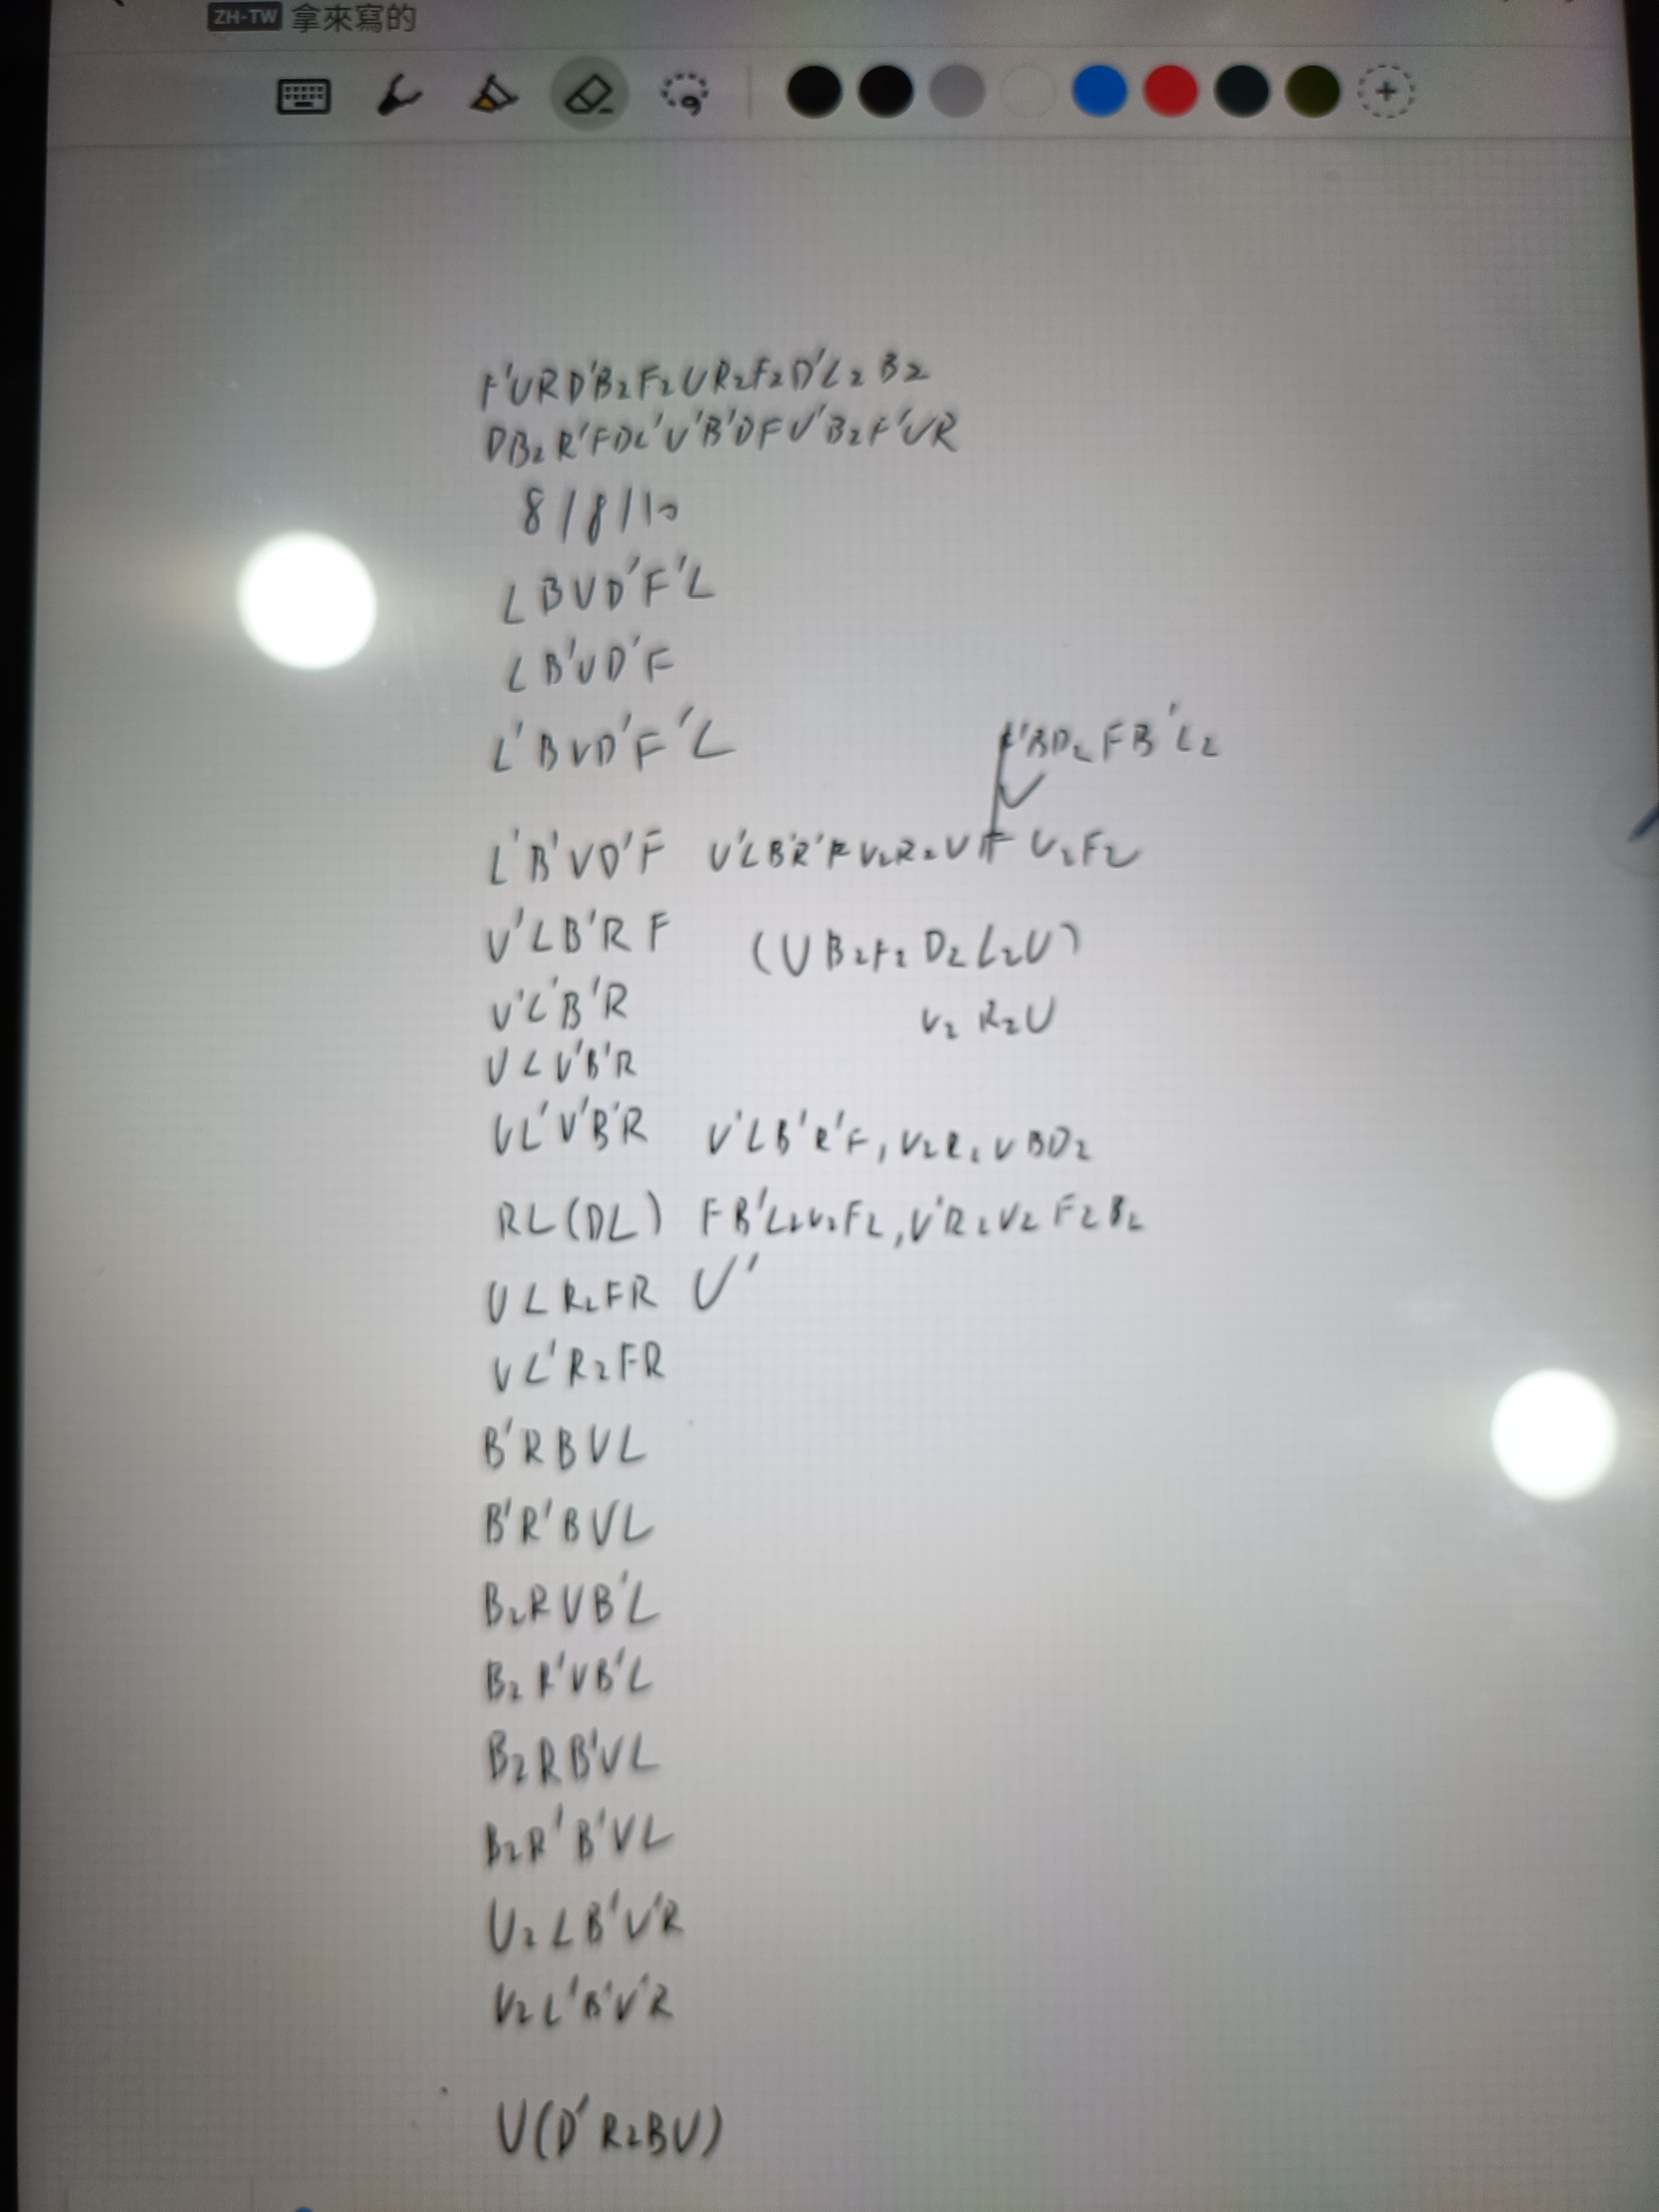 ZH-TW 拿來寫的
F'URD'B2F2UR2F2D'L2B2
DB2R'FDL'U'B'DFU'B2F'UR
8/8/10
LBUD'F'L
LB'UD'F
L'BUD'F'L
BD2FB'L2
L'B'UD'F U'LB'R'F U2R2U F U2F2
U'LB'RF (UB2F2D2L2U)
U'L'B'R U2R2U
ULU'B'R
UL'U'B'R U'LB'R'F, U2R2UBD2
RL(DL) FB'L2U2F2, U'R2U2F2B2
ULR2FR U'
UL'R2FR
B'RBUL
B'R'BUL
B2RUB'L
B2R'UB'L
B2RB'UL
B2R'B'UL
U2LB'U'R
U2L'B'U'R
U(D'R2BU)